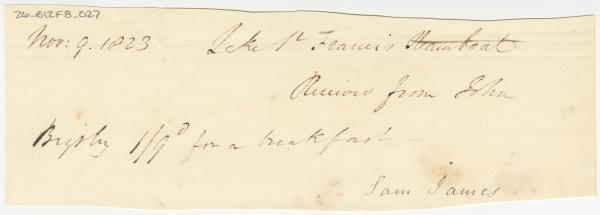 26-B12F8_027
Nov: 9. 1823 Lake St Francis Steamboat
Received from John
Bigsby 1/9d for a breakfast —
Sam James